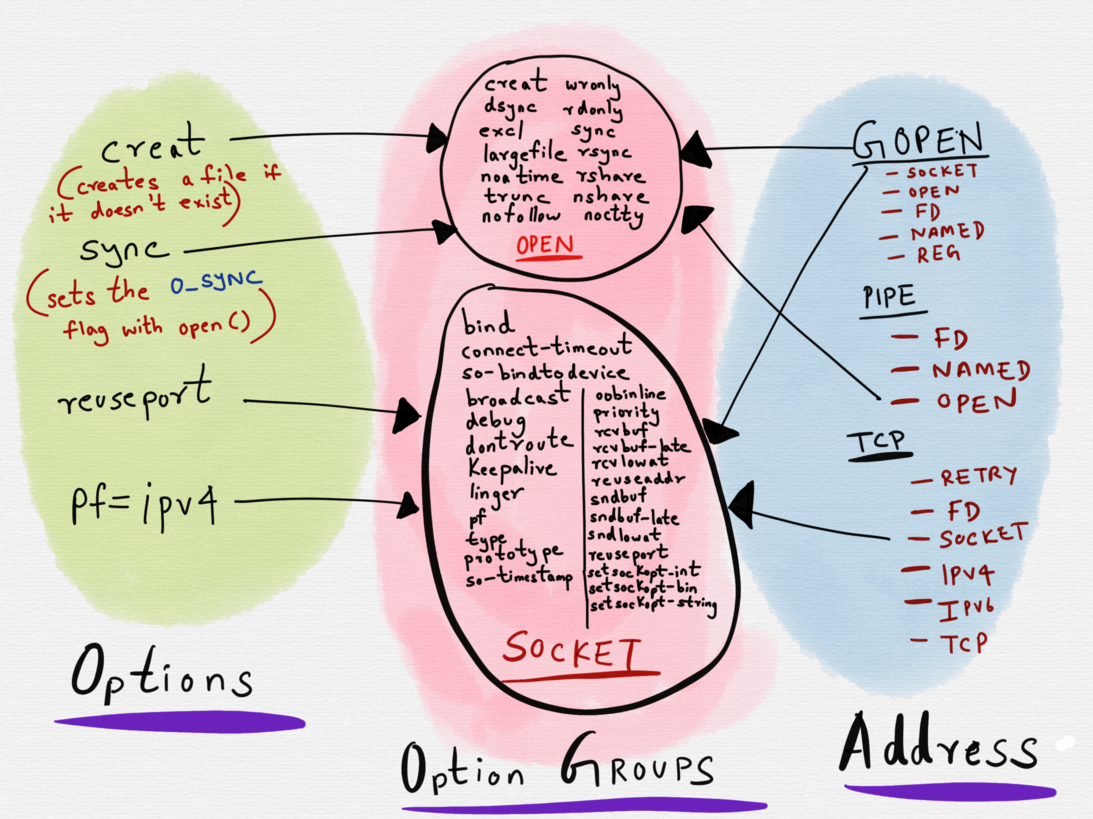 creat
(creates a file if
it doesn't exist)
sync
(sets the O_SYNC
flag with open())
reuseport
pf=ipv4
Options
creat wronly
dsync rdonly
excl sync
largefile rsync
noatime rshare
trunc nshare
nofollow noctty
OPEN
bind
connect-timeout
so-bindtodevice
broadcast
debug
dontroute
Keepalive
linger
pf
type
prototype
so-timestamp
oobinline
priority
rcvbuf
rcvbuf-late
rcvlowat
reuseaddr
sndbuf
sndbuf-late
sndlowat
reuseport
setsockopt-int
setsockopt-bin
setsockopt-string
SOCKET
Option GROUPS
GOPEN
- SOCKET
- OPEN
- FD
- NAMED
- REG
PIPE
- FD
- NAMED
- OPEN
TCP
- RETRY
- FD
- SOCKET
- IPV4
- IPV6
- TCP
Address